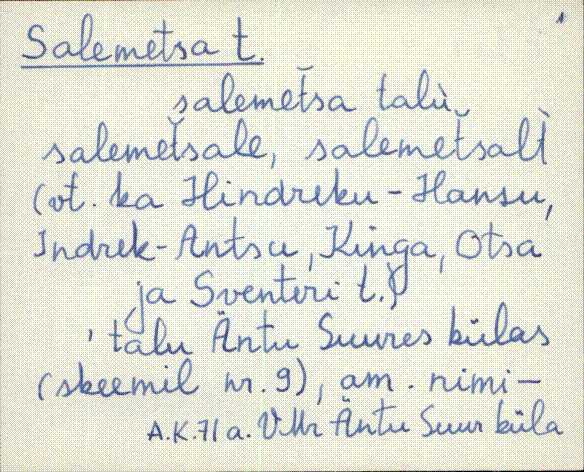 1
Salemetsa t.
salemet̆sa talù,
salemet̆sale, salemet̆salt̀
(vt. ka Hindreku-Hansu,
Indrek-Antsu, Kinga, Otsa
ja Sventeri t.)
' talu Äntu Suures külas
(skeemil nr. 9), am. nimi-
A.K.71 a. VMr Äntu Suur küla